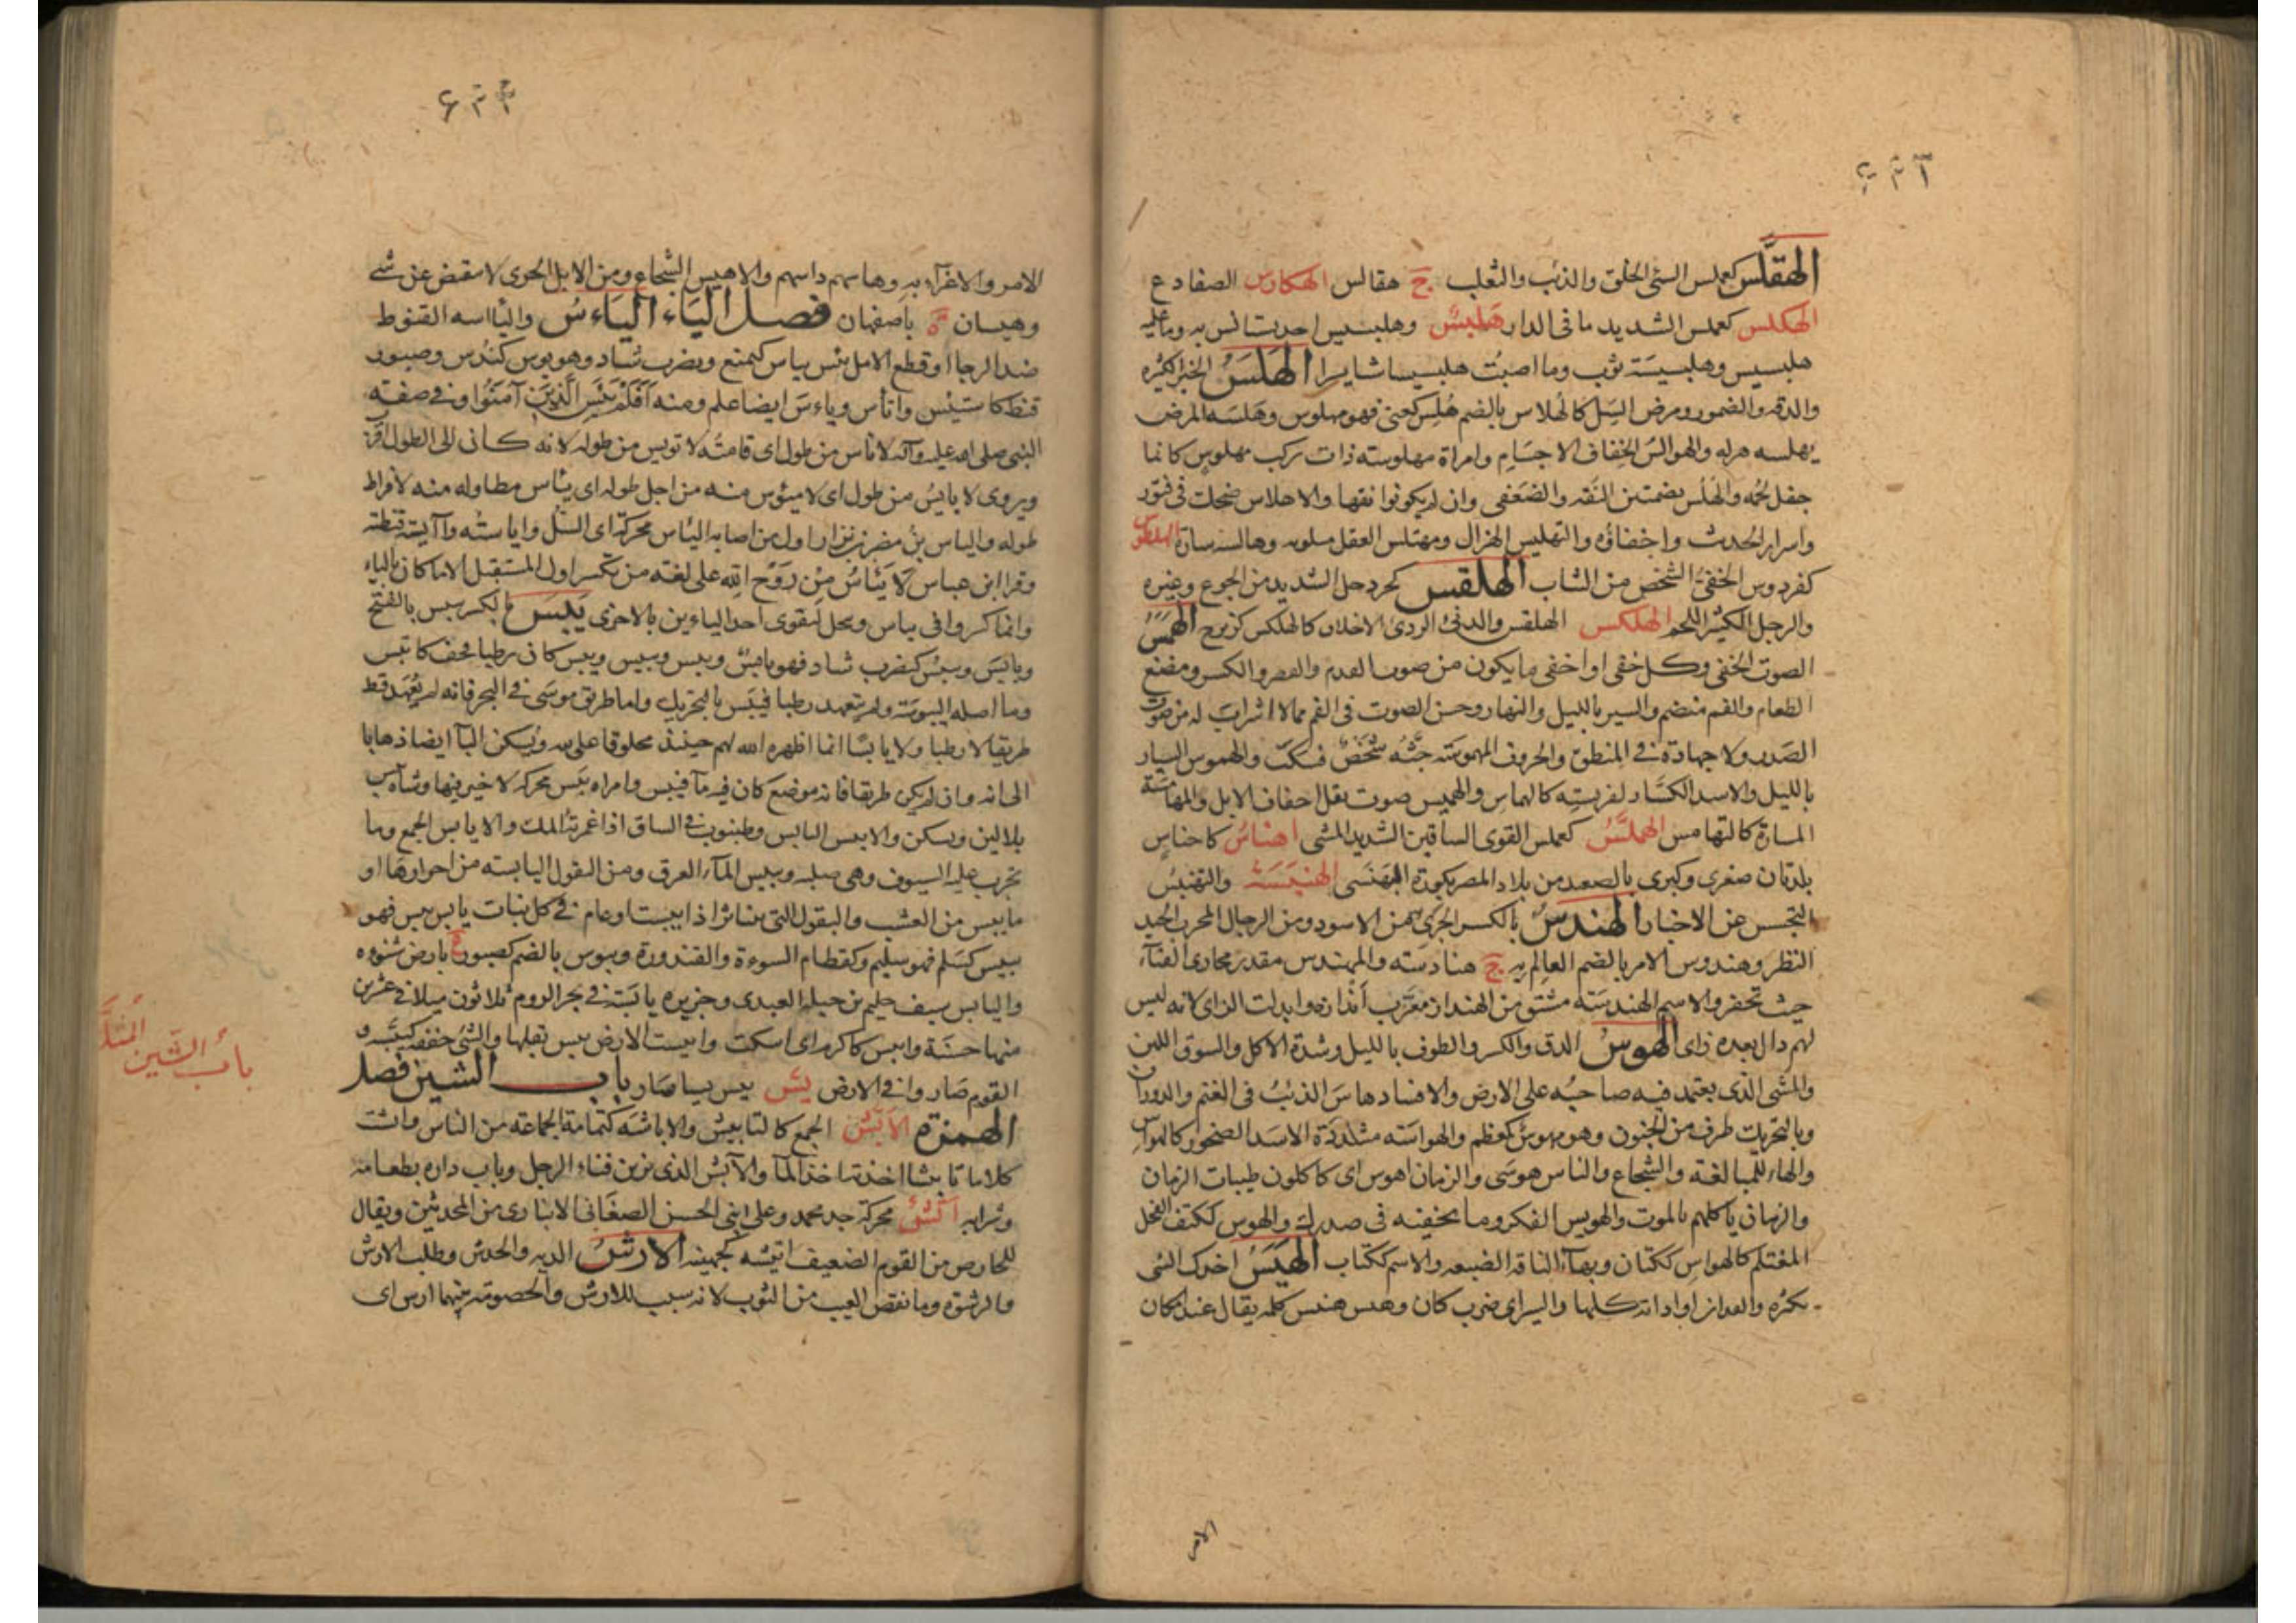 الهقلس كعملس السئ الخلق والذئب والثعلب ج هقالس الهكارس الضفادع
الهكلس كعملس الشديد ما فى الدار هلبس وهلبسيس احد يستانس به وما عليه
هلبسيس وهلبسيسة ثوب وما اصبت هلبسيسا شايسرا الهلس الخير الكثير
والدقة والضمور ومرض السل كالهلاس بالضم هلس كعنى فهو مهلوس وهلسه المرض
يهلسه هزله والهوالس الخفاف الاجسام وامراة مهلوسة ذات ركب مهلوس كانما
جفل لحمه والهلس بضمتين النقه والضعفى وان لم يكونوا نقها والاهلاس ضحك فى فتور
واسرار الحديث واخفاؤه والتهليس الهزال ومهتلس العقل مسلوبه وهالسه ساره الهلطوس
كفردوس الخفى الشخص من الذئاب الهلقس كجردحل الشديد من الجوع وغيره
والرجل الكثير اللحم الهلكس الهلقس والدنئ الردئ الاخلاق كالهلكس كزبرج الهمس
الصوت الخفى وكل خفى او اخفى ما يكون من صوت القدم والعصر والكسر ومضغ
الطعام والفم منضم والسير بالليل والنهار وحس الصوت فى الفم مما لا اشراب له من صوت
الصدر ولا جهارة فى المنطق والحروف المهموسة حثه شخص فسكت والهموس السيار
بالليل والاسد الكسار لفريسته كالهماس والهميس صوت نقل اخفاف الابل والمهامسة
المسارة كالتهامس الهملس كعملس القوى الساقين الشديد المشى اهناس كاحناس
بلدتان صغرى وكبرى بالصعيد من بلاد المصر بكورة البهنسى الهنبسة والتهنبس
التجسس عن الاخبار الهندس بالكسر الجرئ من الاسود ومن الرجال المجرب الجيد
النظر وهندوس الامر بالضم العالم به ج هنادسة والمهندس مقدر مجارى القناء
حيث تحفر والاسم الهندسة مشتق من الهنداز معرب آنذازه وابدلت الزاى لانه ليس
لهم دال بعده زاى الهوس الدق والكسر والطوف بالليل وشدة الاكل والسوق اللين
والمشى الذى يعتمد فيه صاحبه على الارض والافساد هاس الذئب فى الغنم والدوران
وبالتحريك طرف من الجنون وهو مهوس كمعظم والهواسة مشددة الاسد الضحور كالهواس
والهاء للمبالغة والشجاع والناس هوسى والزمان اهوس اى ياكلون طيبات الزمان
والزمان ياكلهم بالموت والهويس الفكر وما تخفيه فى صدرك والهوس ككتف الفحل
المغتلم كالهواس ككتان وبهاء الناقة الضبعة والاسم ككتاب الهيس اخذك الشئ
بكثره والفدان او اداته كلها والسير اى ضرب كان وهيس هيس كلمه يقال عند امكان
الامر
الامر والاغراء به وهاسهم داسهم والاهيس الشجاع ومن الابل الجرى لا ينقبض عن شئ
وهيسان ة باصفهان فصل الياء الياءس واليأاسه القنوط
ضد الرجا او قطع الامل يئس يياس كيمنع ويضرب شاد وهو يوس كندس وصبور
قنط كاستيئس واتأس وياءس ايضا علم ومنه افلم ييئس الذين آمنوا وفى صفته
النبى صلى الله عليه وآله لا ياس من طول اى قامته لا تويس من طوله لانه كان الى الطول اقرب
ويروى لا يايس من طول اى لا ميئوس منه من اجل طوله اى يئاس مطاوله منه لافراط
طوله والياس بن مضر بن نزار اول من اصابه الياس محركة اى السل وايأسته وآيسته قنطته
وقرا ابن عباس لا ييئاس من روح الله على لغة من يكسر اول المستقبل الا ما كان بالياء
وانما كسروا فى يياس وييجل لتقوى احد الياءين بالاخرى يبس بالكسر ييبس بالفتح
ويابس ويبس كيضرب شاد فهو يابس ويبس ويبيس ويبس كان رطبا فجف كاتبس
وما اصله اليبوسة ولم يعهد رطبا فيبس بالتحريك واما طريق موسى فى البحر فانه لم يعهد قط
طريقا لا رطبا ولا يابسا انما اظهره الله لهم حينئذ مخلوقا على ذلك ويسكن الباء ايضا ذهابا
الى انه وان لم يكن طريقا فانه موضع كان فيه مآ فيبس وامراه يبس محركه لا خير فيها وشاة يبس
بلا لبن ويسكن والايبس اليابس وظنبوب فى الساق اذا غمزته المك والايابس الجمع وما
تجرب عليه السيوف وهى صلبه ويبيس المآء العرق ومن البقول اليابسه من احرارها او
ما يبس من العشب والبقول التى تتناثر اذا يبست او عام فى كل نبات يابس يبس فهو
يبيس كسلم فهو سليم وكقطام السوءة والفندورة ويبوس بالضم كصبور ع بارض شنوءه
واليابس سيف حكيم بن جبلة العبدى وجزيره يابسة فى بحر الروم ثلاثون ميلا فى عشرين
منها حسنة وايبس كاكرم اى اسكت وايبست الارض يبس بقلها والشئ جففه كيبسه و
القوم صاروا فى الارض يس ييس يسا سار باب الشين فصل
الهمزه الابش الجمع كالتابيش والاباشه كثمامة الجماعه من الناس وابشت
كلاما تابيشا اخذته اخذ المآ والآبش الذى يزين فناء الرجل وباب داره بطعامه
وشرابه اتش محركة جد محمد وعلى ابنى الحسن الصغانى الانبارى من المحدثين ويقال
للحارص من القوم الضعيف اتيشه كجهينه الارش الديه والخدش وطلب الارش
والرشوه وما نقص العيب من الثوب لانه سبب للارش والخصومة بينهما ارش اى
باب الشين المثلثة